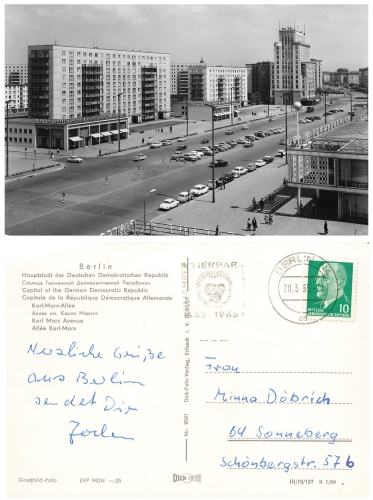 Berlin
Hauptstadt der Deutschen Demokratischen Republik
Столица Германской Демократической Республики
Capital of the German Democratic Republic
Capitale de la République Démocratique Allemande
Karl-Marx-Allee
Аллея им. Карла Маркса
Karl Marx Avenue
Allée Karl-Marx
Herzliche Grüße
aus Berlin
sendet Dir
Großbild-Foto
EVP MDN —.25
Dick-Foto-Verlag, Erlbach i. V.
Nr. 9501
DICK
TIERPARK
1965
BERLIN
20.3.6
10
Frau
Minna Döbrich
64 Sonneberg
Schönbergstr. 57b
III/18/197 K 1/64